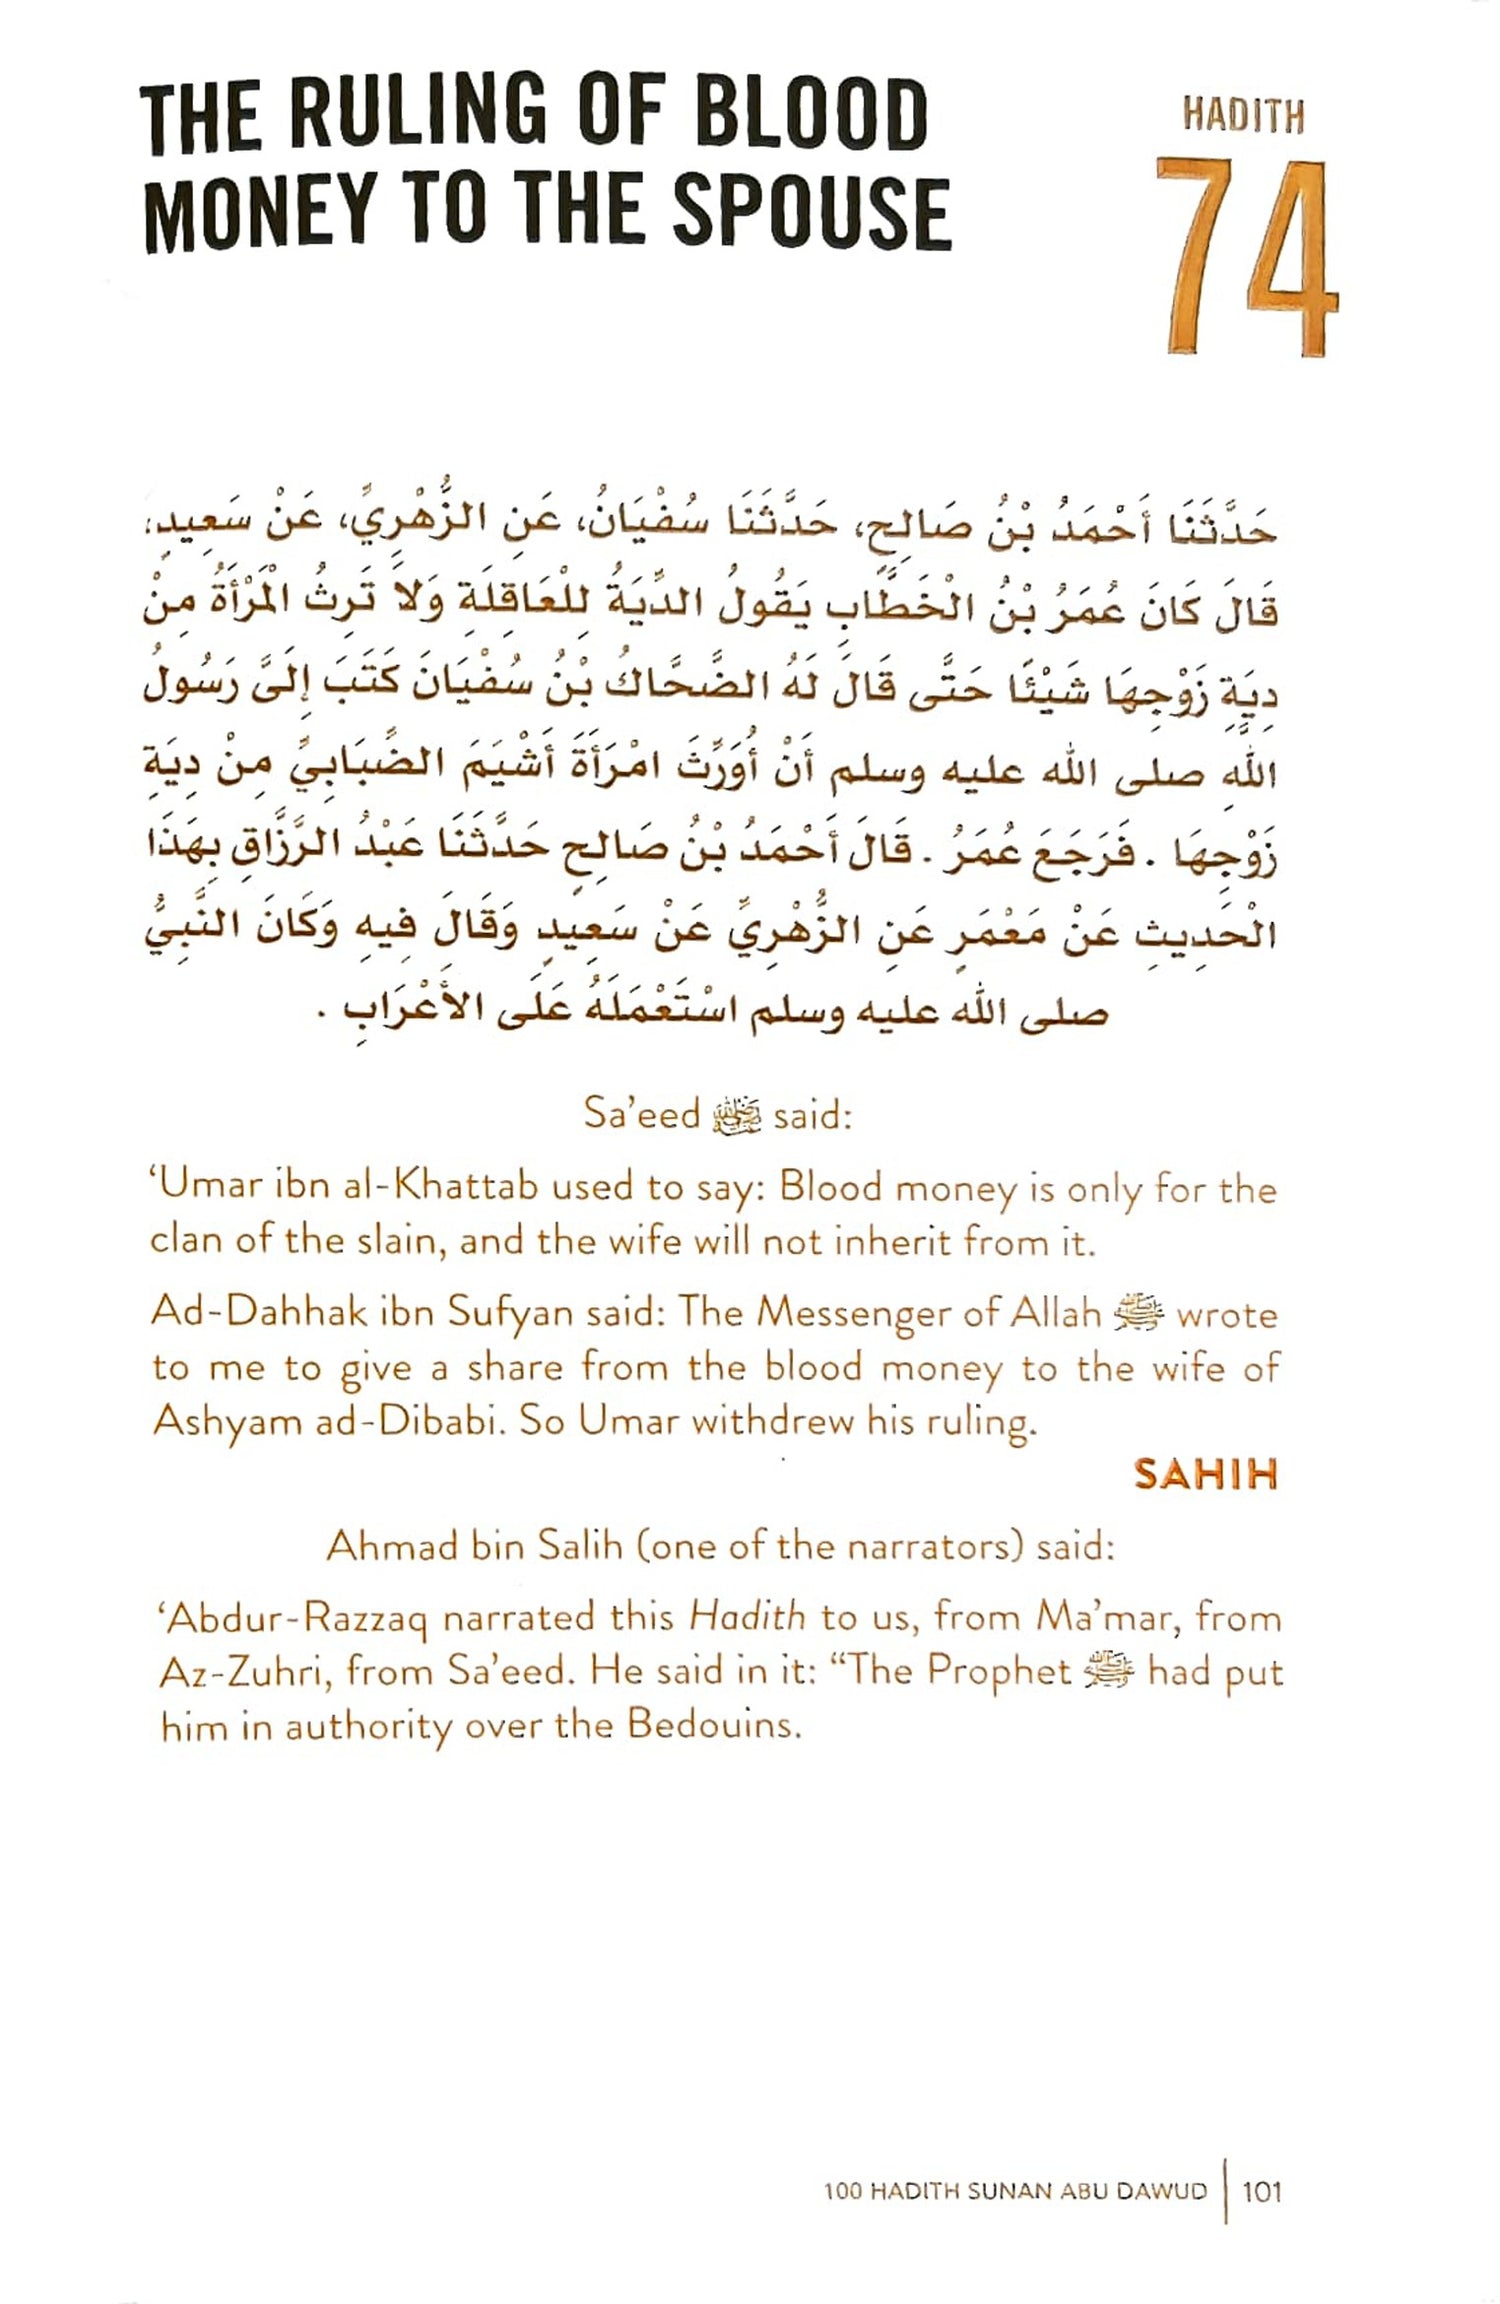 THE RULING OF BLOOD
MONEY TO THE SPOUSE
HADITH
74
حَدَّثَنَا أَحْمَدُ بْنُ صَالِحٍ، حَدَّثَنَا سُفْيَانُ، عَنِ الزُّهْرِيِّ، عَنْ سَعِيدٍ،
قَالَ كَانَ عُمَرُ بْنُ الْخَطَّابِ يَقُولُ الدِّيَةُ لِلْعَاقِلَةِ وَلاَ تَرِثُ الْمَرْأَةُ مِنْ
دِيَةِ زَوْجِهَا شَيْئًا حَتَّى قَالَ لَهُ الضَّحَّاكُ بْنُ سُفْيَانَ كَتَبَ إِلَىَّ رَسُولُ
اللهِ صلى الله عليه وسلم أَنْ أُوَرِّثَ امْرَأَةَ أَشْيَمَ الضِّبَابِيِّ مِنْ دِيَةِ
زَوْجِهَا . فَرَجَعَ عُمَرُ . قَالَ أَحْمَدُ بْنُ صَالِحٍ حَدَّثَنَا عَبْدُ الرَّزَّاقِ بِهَذَا
الْحَدِيثِ عَنْ مَعْمَرٍ عَنِ الزُّهْرِيِّ عَنْ سَعِيدٍ وَقَالَ فِيهِ وَكَانَ النَّبِيُّ
صلى الله عليه وسلم اسْتَعْمَلَهُ عَلَى الأَعْرَابِ .
Sa’eed said:
‘Umar ibn al-Khattab used to say: Blood money is only for the
clan of the slain, and the wife will not inherit from it.
Ad-Dahhak ibn Sufyan said: The Messenger of Allah ﷺ wrote
to me to give a share from the blood money to the wife of
Ashyam ad-Dibabi. So Umar withdrew his ruling.
SAHIH
Ahmad bin Salih (one of the narrators) said:
‘Abdur-Razzaq narrated this Hadith to us, from Ma’mar, from
Az-Zuhri, from Sa’eed. He said in it: “The Prophet ﷺ had put
him in authority over the Bedouins.
100 HADITH SUNAN ABU DAWUD | 101